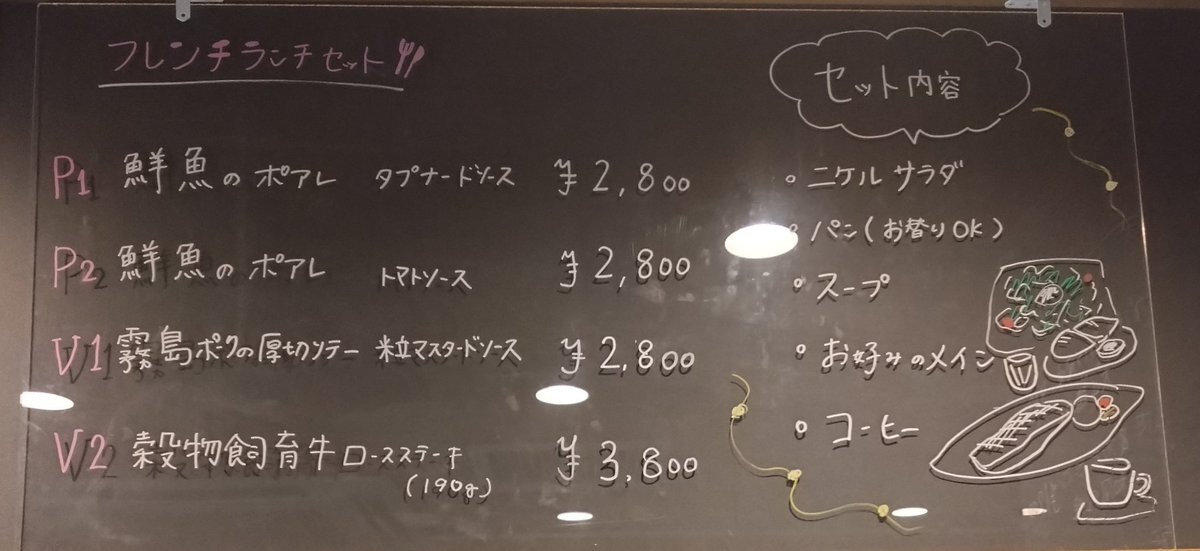 フレンチランチセット
P1 鮮魚のポアレ タプナードソース ¥2,800
P2 鮮魚のポアレ トマトソース ¥2,800
V1 霧島ポークの厚切ソテー 粒マスタードソース ¥2,800
V2 穀物飼育牛ロースステーキ ¥3,800
(190g)
セット内容
○ニケルサラダ
○パン(お替りOK)
○スープ
○お好みのメイン
○コーヒー